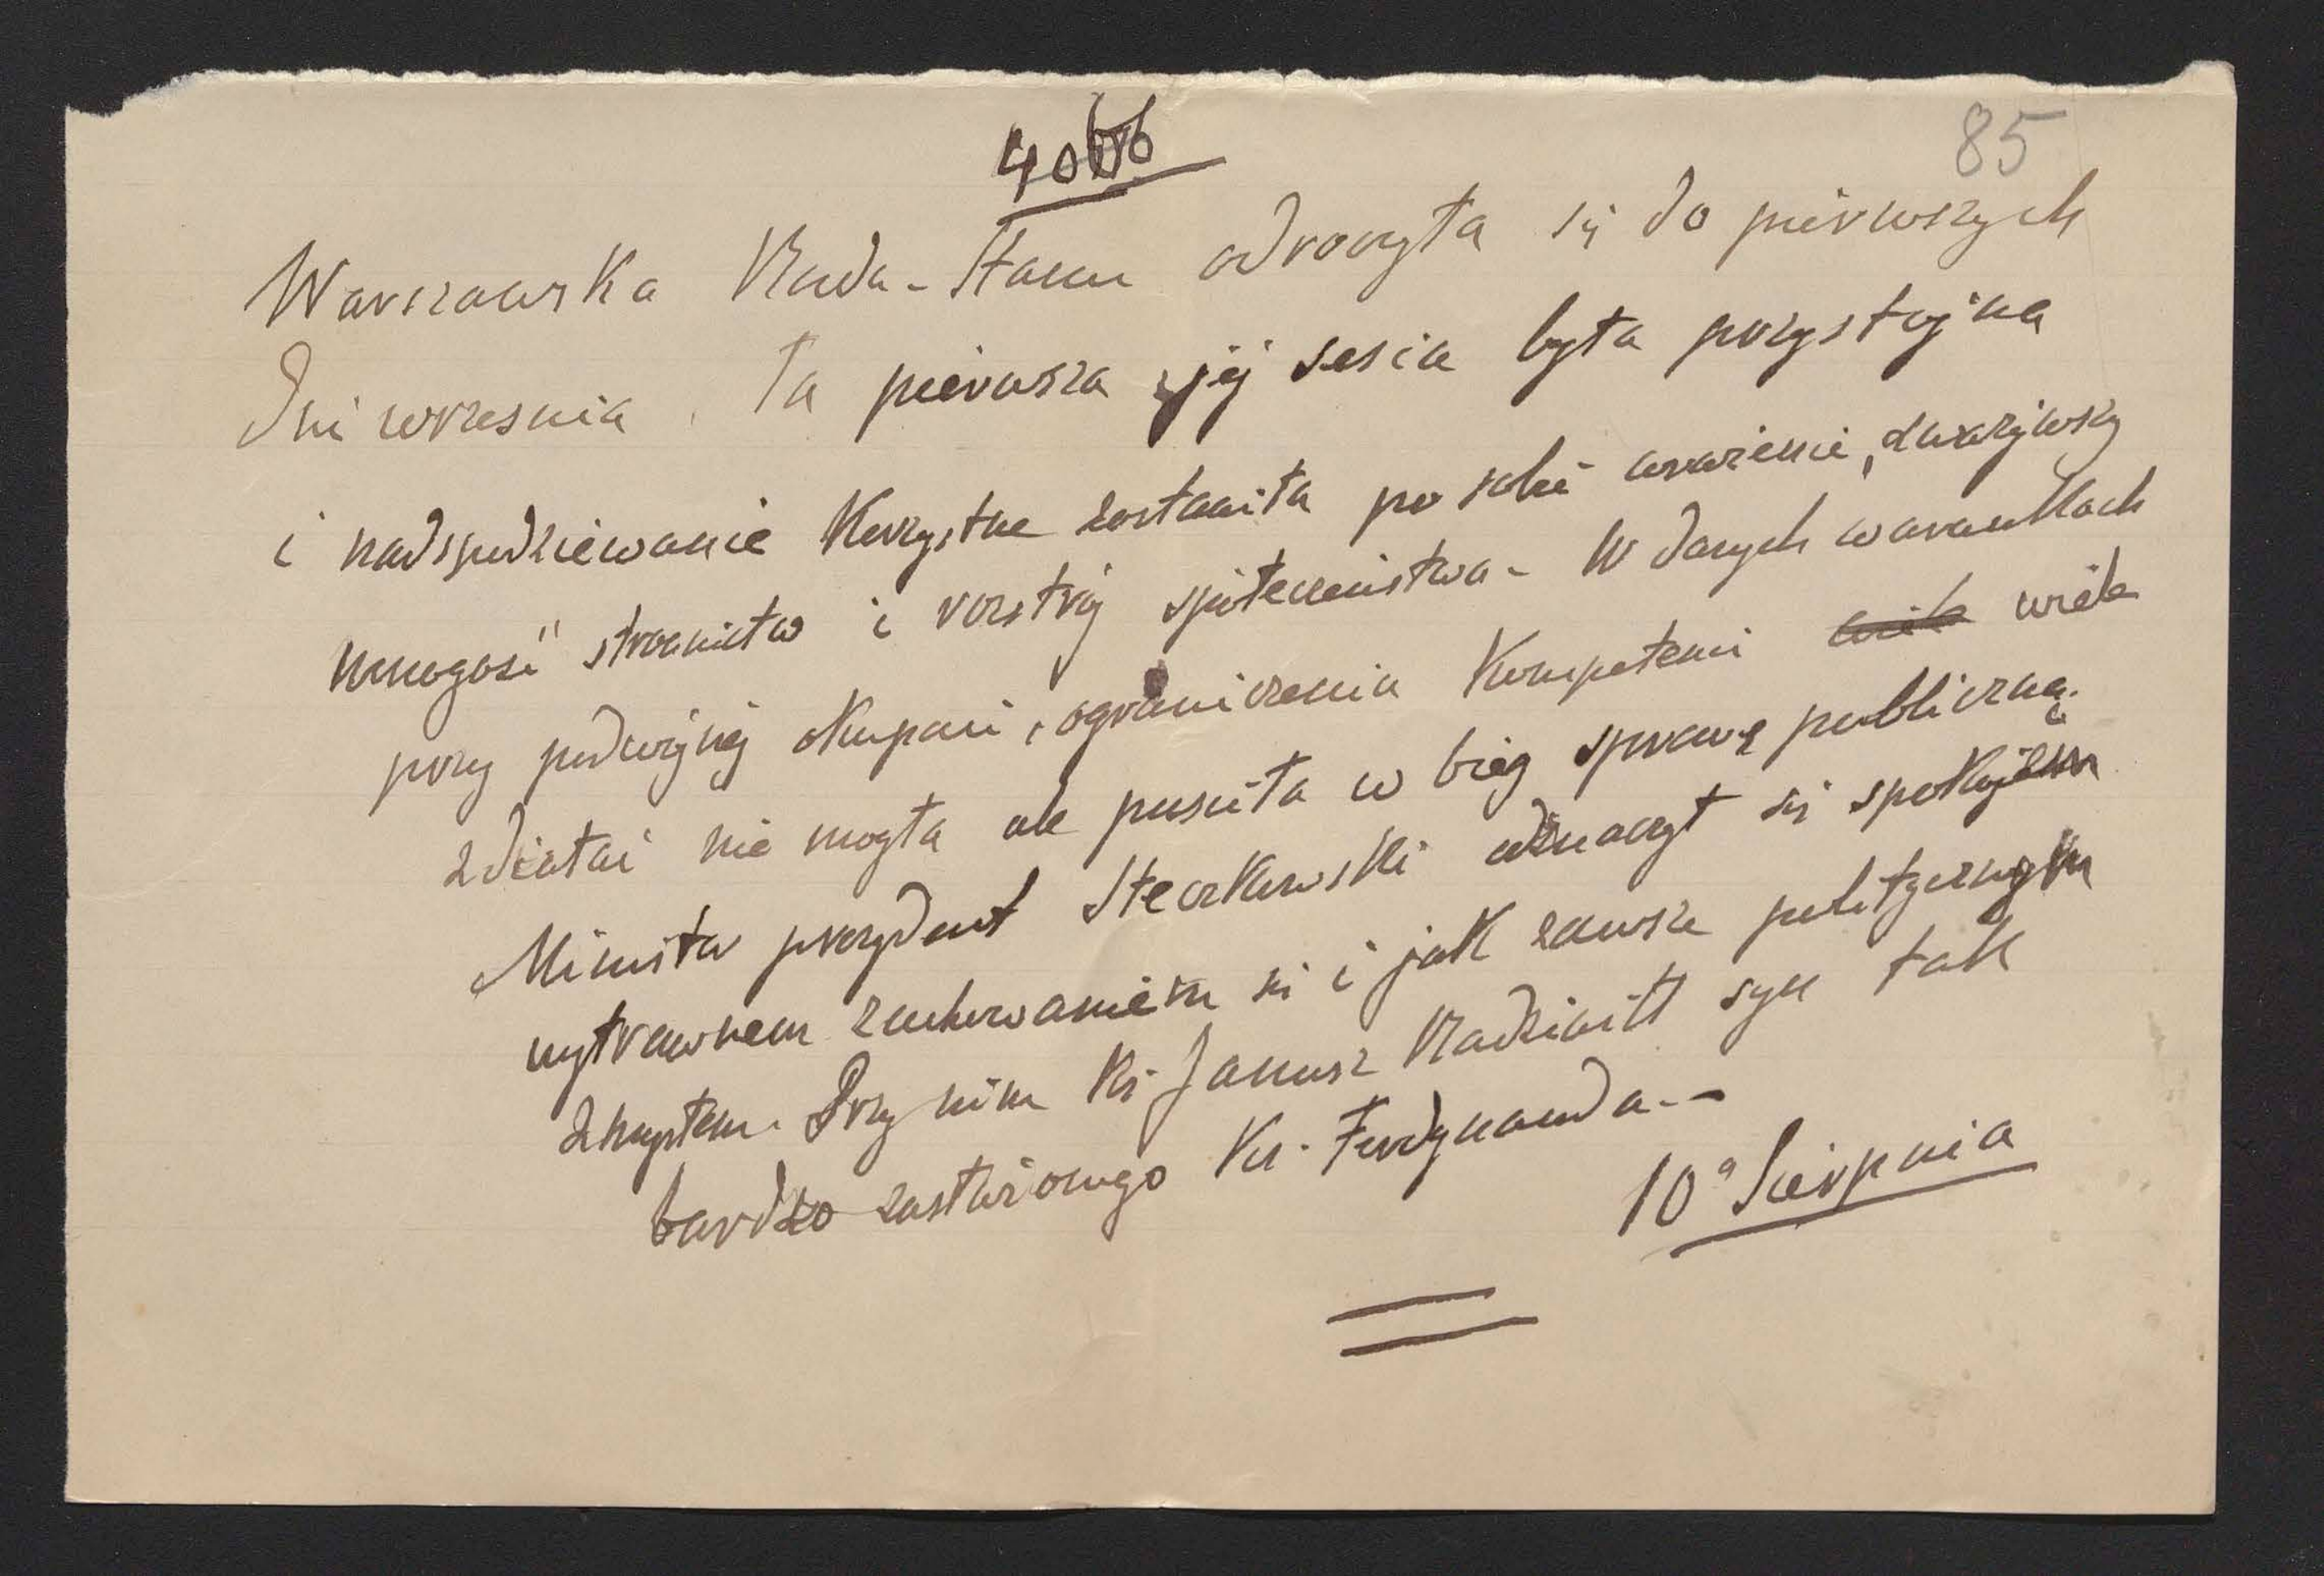 85
Warszawska Rada-Stanu odroczyła się do piérwszych
Dni wrzesnia. Ta piérwsza jéj sesia była przystojna
i nadspodziéwanie korzystne zostawiła po sobie wrażenie, zważywszy
mnogość stronnictw i rozstrój społeczeństwa – W danych warunkach
przy podwójnéj okupacii, ograniczenia kompetencii wiele
zdziałać nie mogła ale pusciła w biég sprawę publiczną.
Ministr prezydent Steczkowski odznaczył się spokojem
wytrawnem zachowaniem się i jak zawsze politycznym
zmysłem. Przy nim Ks. Janusz Radziwiłł syn tak
bardzo zasłużonego Ks. Ferdynanda. –
10ª Sierpnia